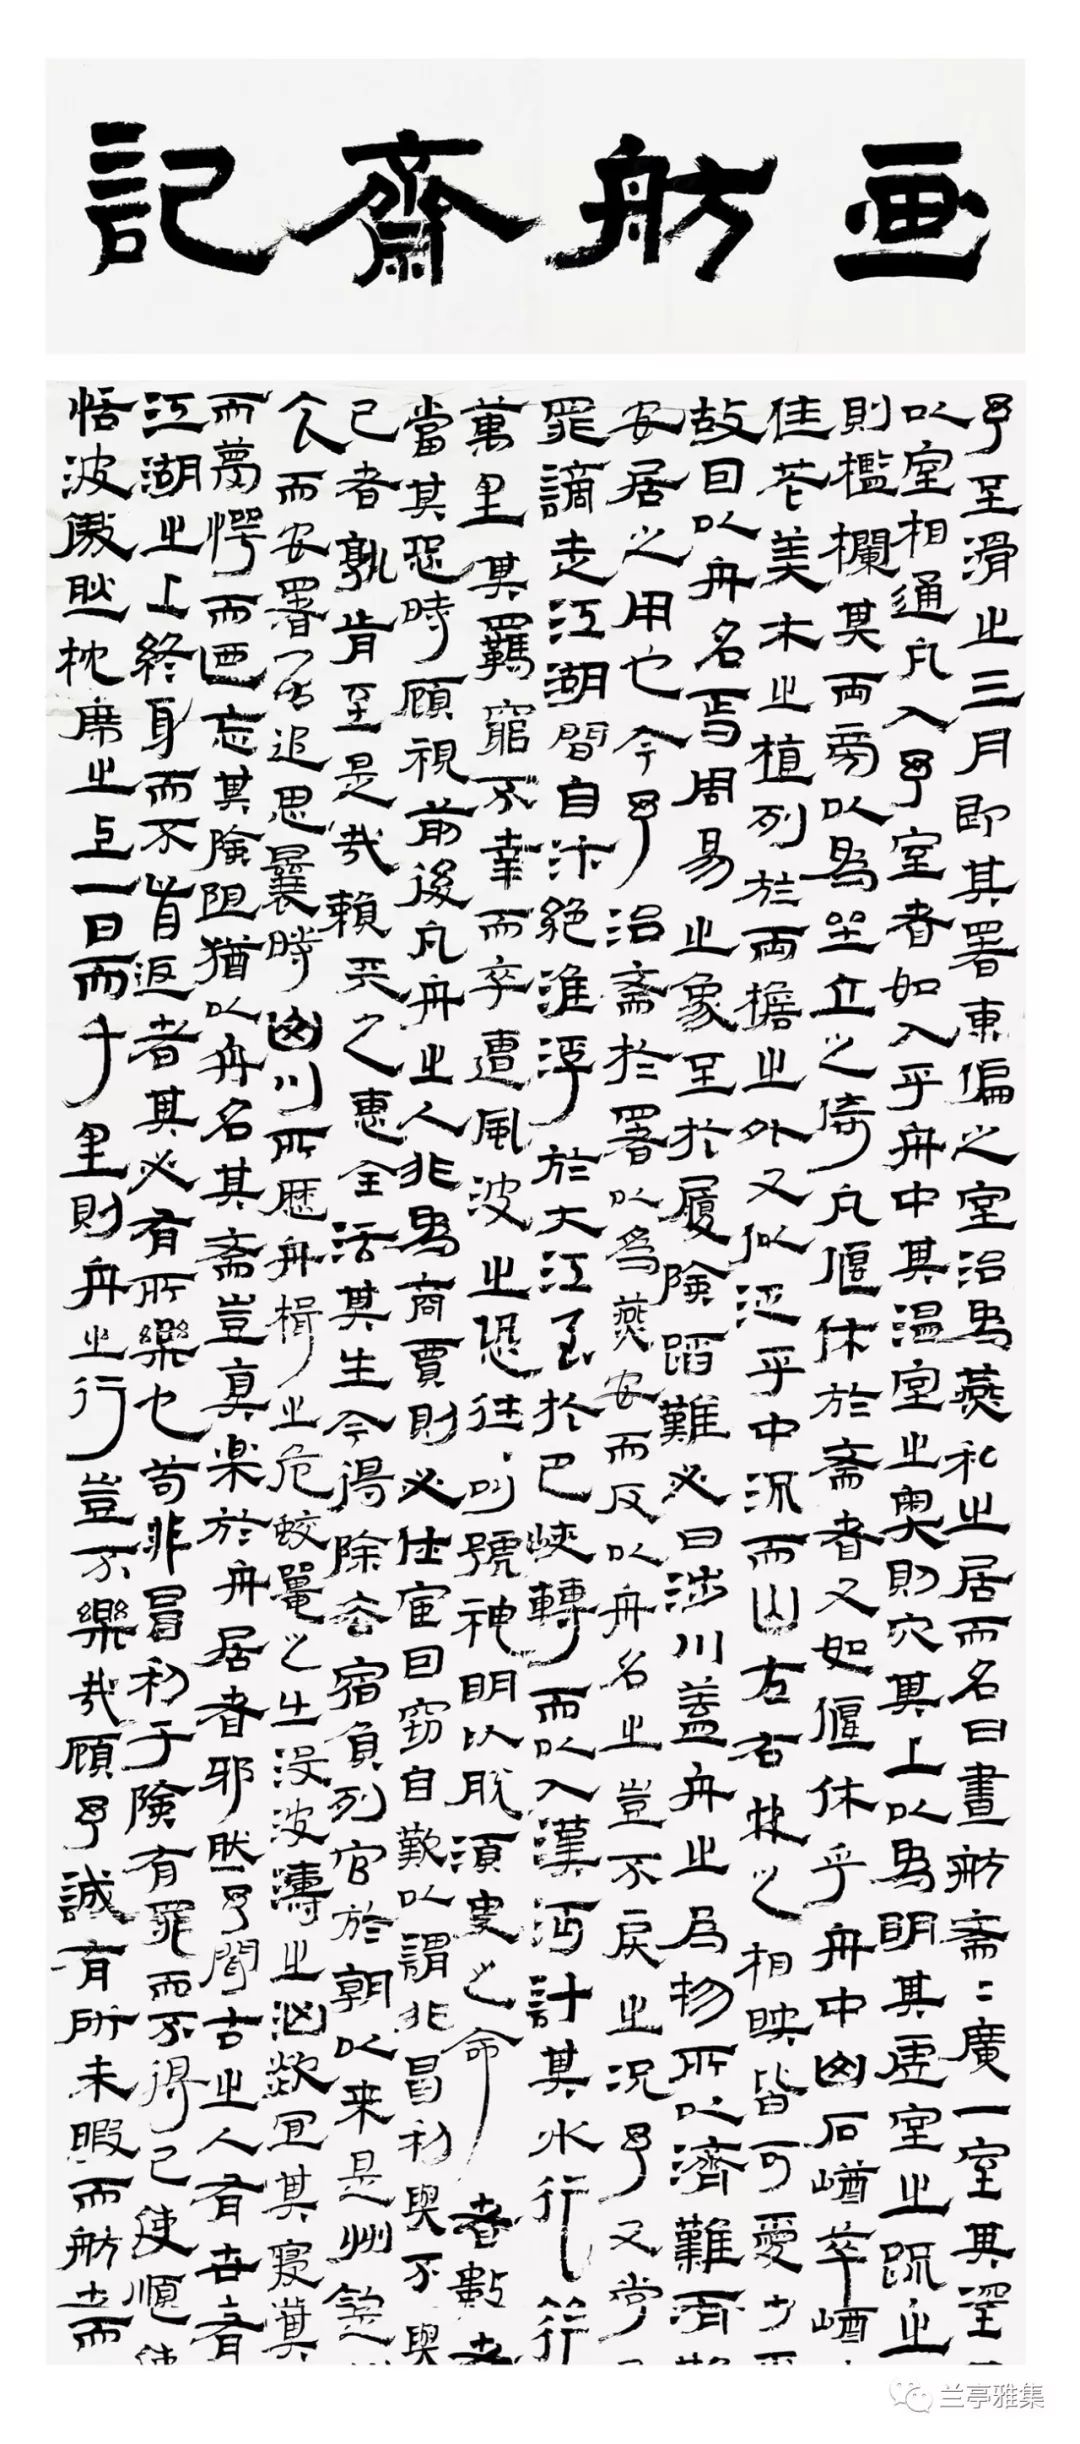 画舫齋記
予至滑之三月即其署東偏之室治為燕私之居而名曰畫舫斋〻廣一室其深
以室相通凡入予室者如入乎舟中其温室之奥則穴其上以為明其虚室之疏之
則檻欄其兩旁以為坐立之倚凡偃休於斋者又如偃休乎舟中山石崷崒崷
佳花美木之植列於兩檐之外又似泛乎中流而山左右林之相映皆可愛
故因以舟名焉周易之象至於履險蹈難必曰涉川盖舟之為物所以濟難
安居之用也今予治斋於署以為燕安而反以舟名之豈不戾之況予又嘗
罪謫走江湖間自汴絕淮浮於大江至於巴峽轉而以入漢沔計其水行
萬里其羈窮不幸而卒遭風波之恐往叫號神明以脫須臾之命者數
當其恐時顧視前後凡舟之人非為商賈則必仕宦因窃自歎以謂非冒利與不
己者孰肯至是哉賴天之惠全活其生今得除去宿負列官於朝以来是州
食而安署居追思曩時山川所歷舟楫之危蛟鼉之出没波濤之汹欻宜其寝
而夢愕而廼忘其險阻猶以舟名其斋豈真楽於舟居者邪然予聞古之人有
江湖之上終身而不肯返者其必有所樂也苟非冒利于險有罪而不得已使順
恬波傲然枕席之上一日而千里則舟之行豈不樂哉顧予誠有所未暇而舫
兰亭雅集